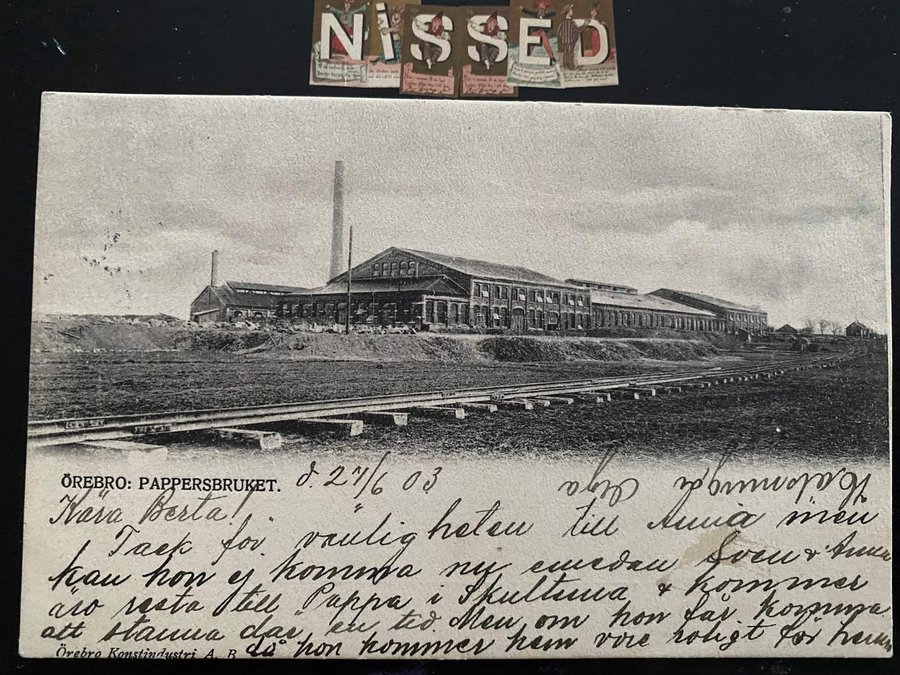 NiSSED
ÖREBRO: PAPPERSBRUKET. d. 27/6 03
Hälsningar Olga
Kära Berta!
Tack för vänligheten till Anna men
kan hon ej komma nu emedan Sven & Anna
äro resta till Pappa i Skultuna & kommer
att stanna där en tid. Men om hon får komma
då hon kommer hem vore roligt för henne
Örebro Konstindustri A. B.